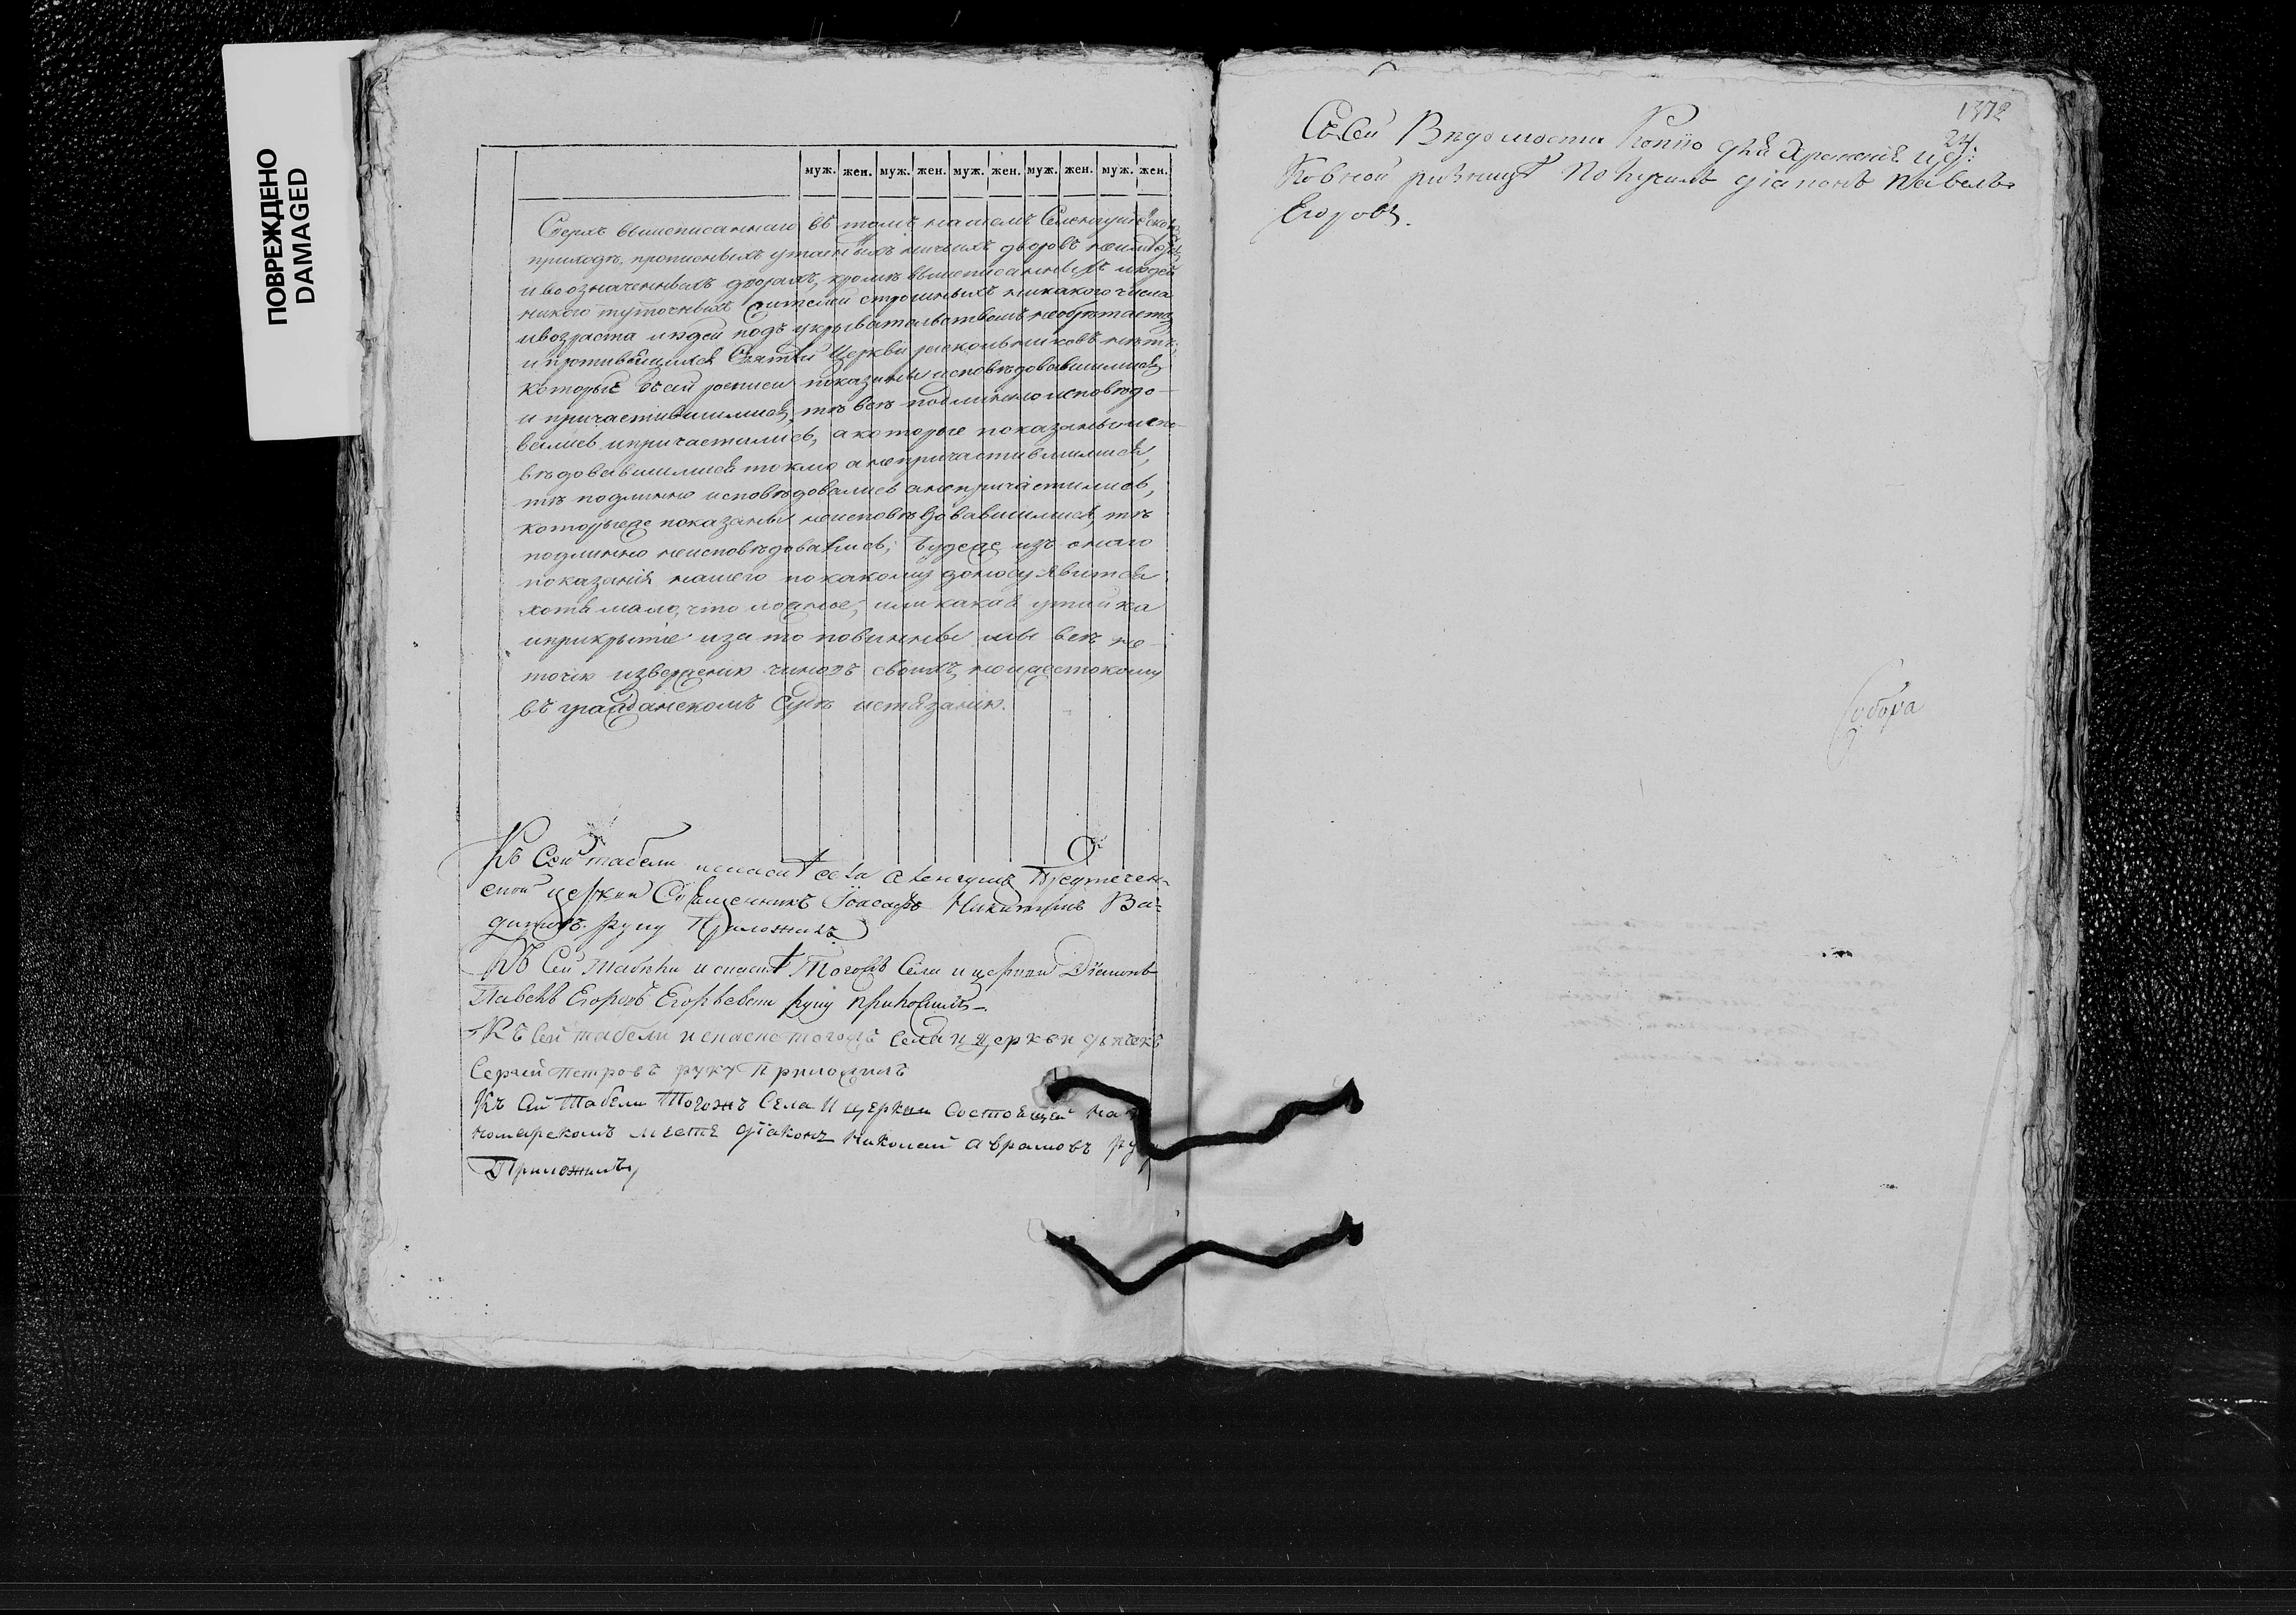 ПОВРЕЖДЕНО
DAMAGED
муж. жен. муж. жен. муж. жен. муж. жен. муж. жен.
Сверхъ вышеписаннаго въ томъ нашемъ
приходѣ, прописныхъ утаенныхъ ничьихъ дворовъ
и во означенныхъ дворахъ, кромѣ вышеписанныхъ людей
никого туточныхъ жителей строинныхъ никакого числа
и возраста людей подъ укрывательствомъ необрѣтается
и противящихся Святѣй Церкви раскольниковъ нѣтъ;
которые въ сей росписи показаны исповѣдовавшимися
и причастившимися, тѣ всѣ подлинно исповѣдо-
вались и причастились, а которые показаны испо-
вѣдовавшимися токмо а непричастившимися,
тѣ подлинно исповѣдовались а непричастились,
которыеже показаны неисповѣдовавшимися, тѣ
подлинно неисповѣдовались; Будеже изъ онаго
показанія нашего по какому доносу явится
хотя мало, что ложное, или какая утайка
и прикрытіе и за то повинны мы всѣ не
точію изверженію чиновъ своихъ, но и жестокому
въ гражданскомъ Судѣ истязанію.
Къ Сей табели села Предтечен-
ской церкви Священникъ Іоасафъ Никитинъ
руку Приложилъ
Къ Сей Табели Тогожъ Села и церкви Діаконъ
Павелъ Егоровъ руку приложилъ
Къ Сей табели тогожъ Села и церкви дьячекъ
Сергей Петровъ руку Приложилъ
Къ Сей Табели Тогожъ Села и церкви Состоящей на
номарскомъ месте діаконъ Николай Аврамовъ
Приложилъ
1372
24
Съ Сей Вѣдомости Копію для Храненія
ризницѣ Получилъ діаконъ Павелъ
Егоровъ.
Собора